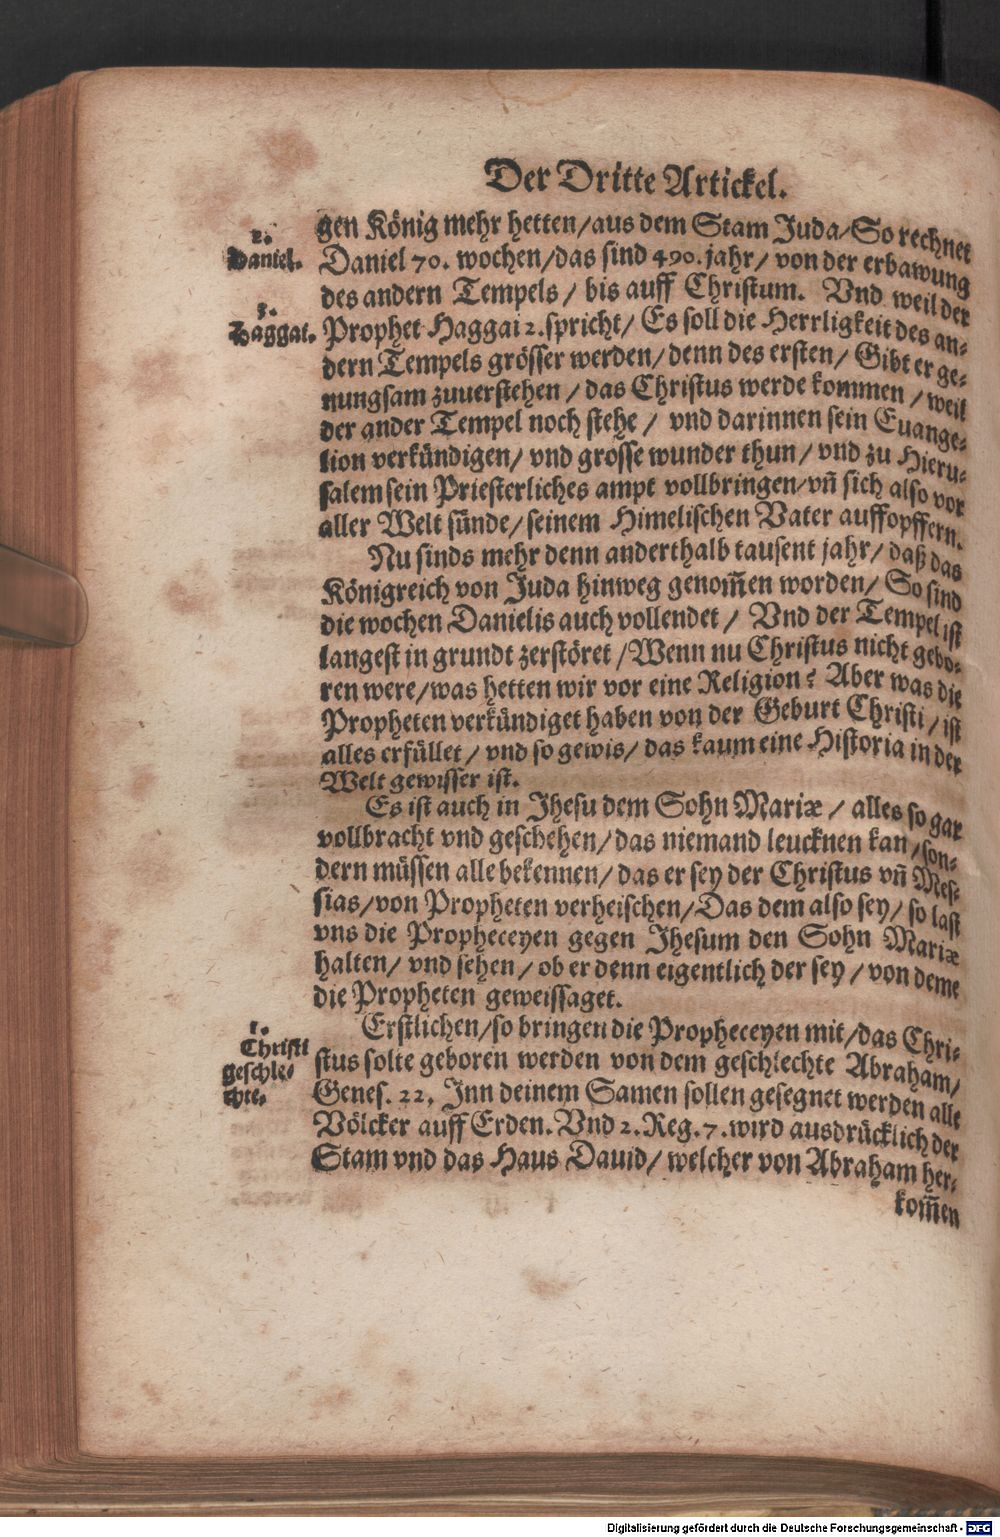 Der Dritte Artickel.
gen König mehr hetten/aus dem Stam Juda/So rechnet
2.
Daniel.
Daniel 70. wochen/das sind 490. jahr/ von der erbawung
des andern Tempels / bis auff Christum. Vnd weil der
3.
Haggai.
Prophet Haggai 2. spricht/ Es soll die Herrligkeit des an-
dern Tempels grösser werden/denn des ersten/ Gibt er ge-
nungsam zuuerstehen / das Christus werde kommen / weil
der ander Tempel noch stehe / vnd darinnen sein Euange-
lion verkündigen/ vnd grosse wunder thun/ vnd zu Hieru-
salem sein Priesterliches ampt vollbringen/vn̄ sich also vor
aller Welt sünde/ seinem Himelischen Vater auffopffern.
Nu sinds mehr denn anderthalb tausent jahr/ daß das
Königreich von Juda hinweg genom̄en worden/ So sind
die wochen Danielis auch vollendet / Vnd der Tempel ist
langest in grundt zerstöret /Wenn nu Christus nicht gebo-
ren were/was hetten wir vor eine Religion? Aber was die
Propheten verkündiget haben von der Geburt Christi / ist
alles erfüllet/ vnd so gewis/ das kaum eine Historia in der
Welt gewisser ist.
Es ist auch in Jhesu dem Sohn Mariæ / alles so gar
vollbracht vnd geschehen/das niemand leucknen kan /son-
dern müssen alle bekennen/ das er sey der Christus vn̄ Mes-
sias/von Propheten verheischen/Das dem also sey/ so last
vns die Propheceyen gegen Jhesum den Sohn Mariæ
halten/ vnd sehen/ ob er denn eigentlich der sey / von deme
die Propheten geweissaget.
1.
Christi
geschle-
chte.
Erstlichen/so bringen die Propheceyen mit/das Chri-
stus solte geboren werden von dem geschlechte Abraham/
Genes. 22. Inn deinem Samen sollen gesegnet werden alle
Völcker auff Erden. Vnd 2. Reg. 7. wird ausdrücklich der
Stam vnd das Haus Dauid/ welcher von Abraham her-
kom̄en
Digitalisierung gefördert durch die Deutsche Forschungsgemeinschaft - DFG